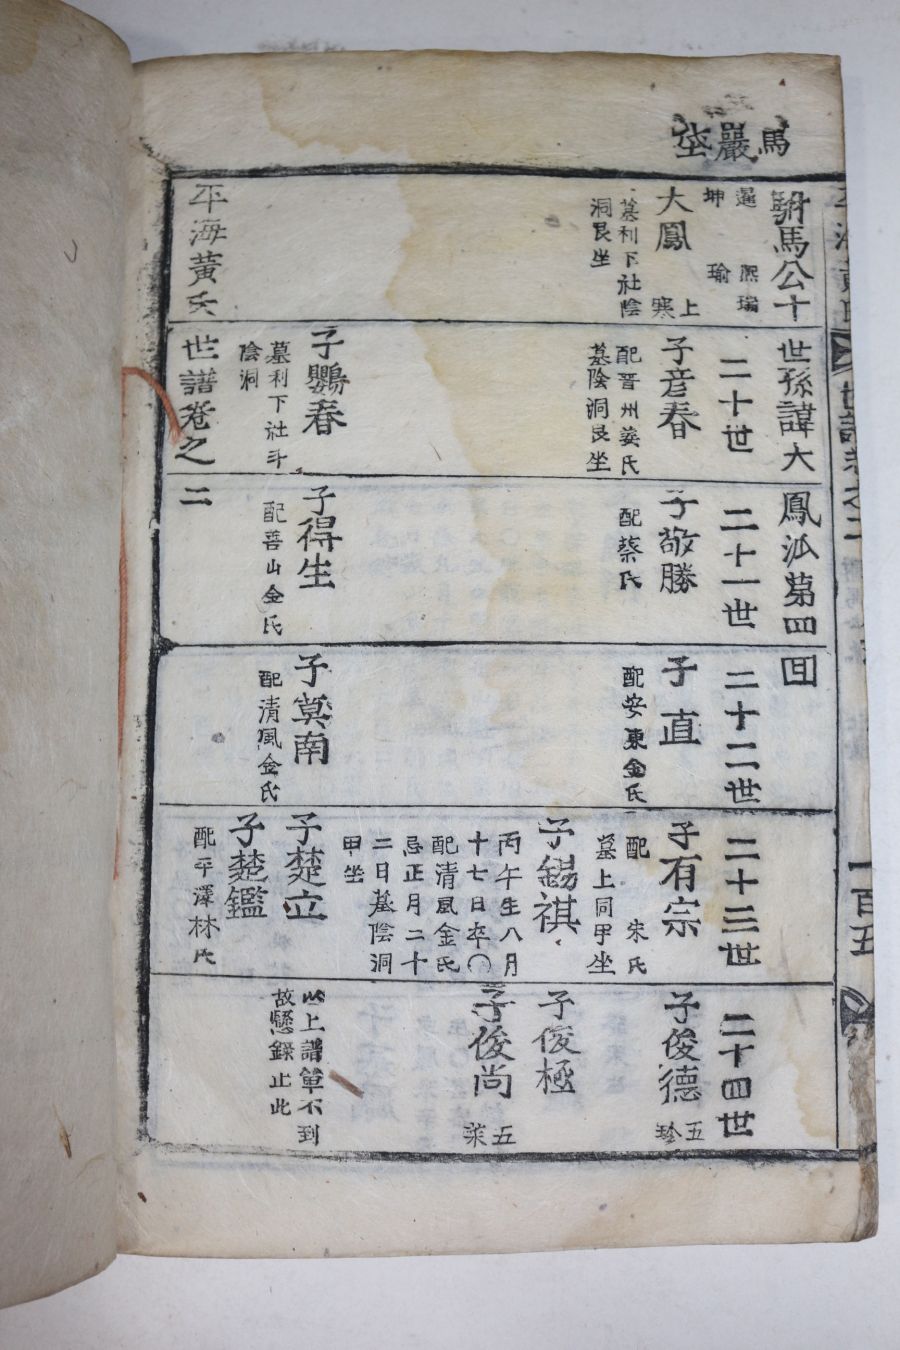 馬巖坐
駙馬公十世孫諱大鳳派第四回
暹 熙瑞
坤 瑜
二十世
二十一世
二十二世
二十三世
二十四世
大鳳 上寒
墓利下社陰
洞艮坐
子彦春
配晋州姜氏
墓陰洞艮坐
子敬勝
配蔡氏
子直
配安東金氏
子有宗
配 宋氏
墓上同甲坐
子俊德 五珍
子錫祺
丙午生八月
十七日卒〇
配清風金氏
忌正月二十
二日墓陰洞
甲坐
子俊極
子俊尚 五萊
子鸚春
墓利下社斗
陰洞
子得生
配善山金氏
子蓂南
配清風金氏
子楚立
以上譜單不到
故懸錄止此
子楚鑑
配平澤林氏
平海黃氏世譜卷之二
一百五